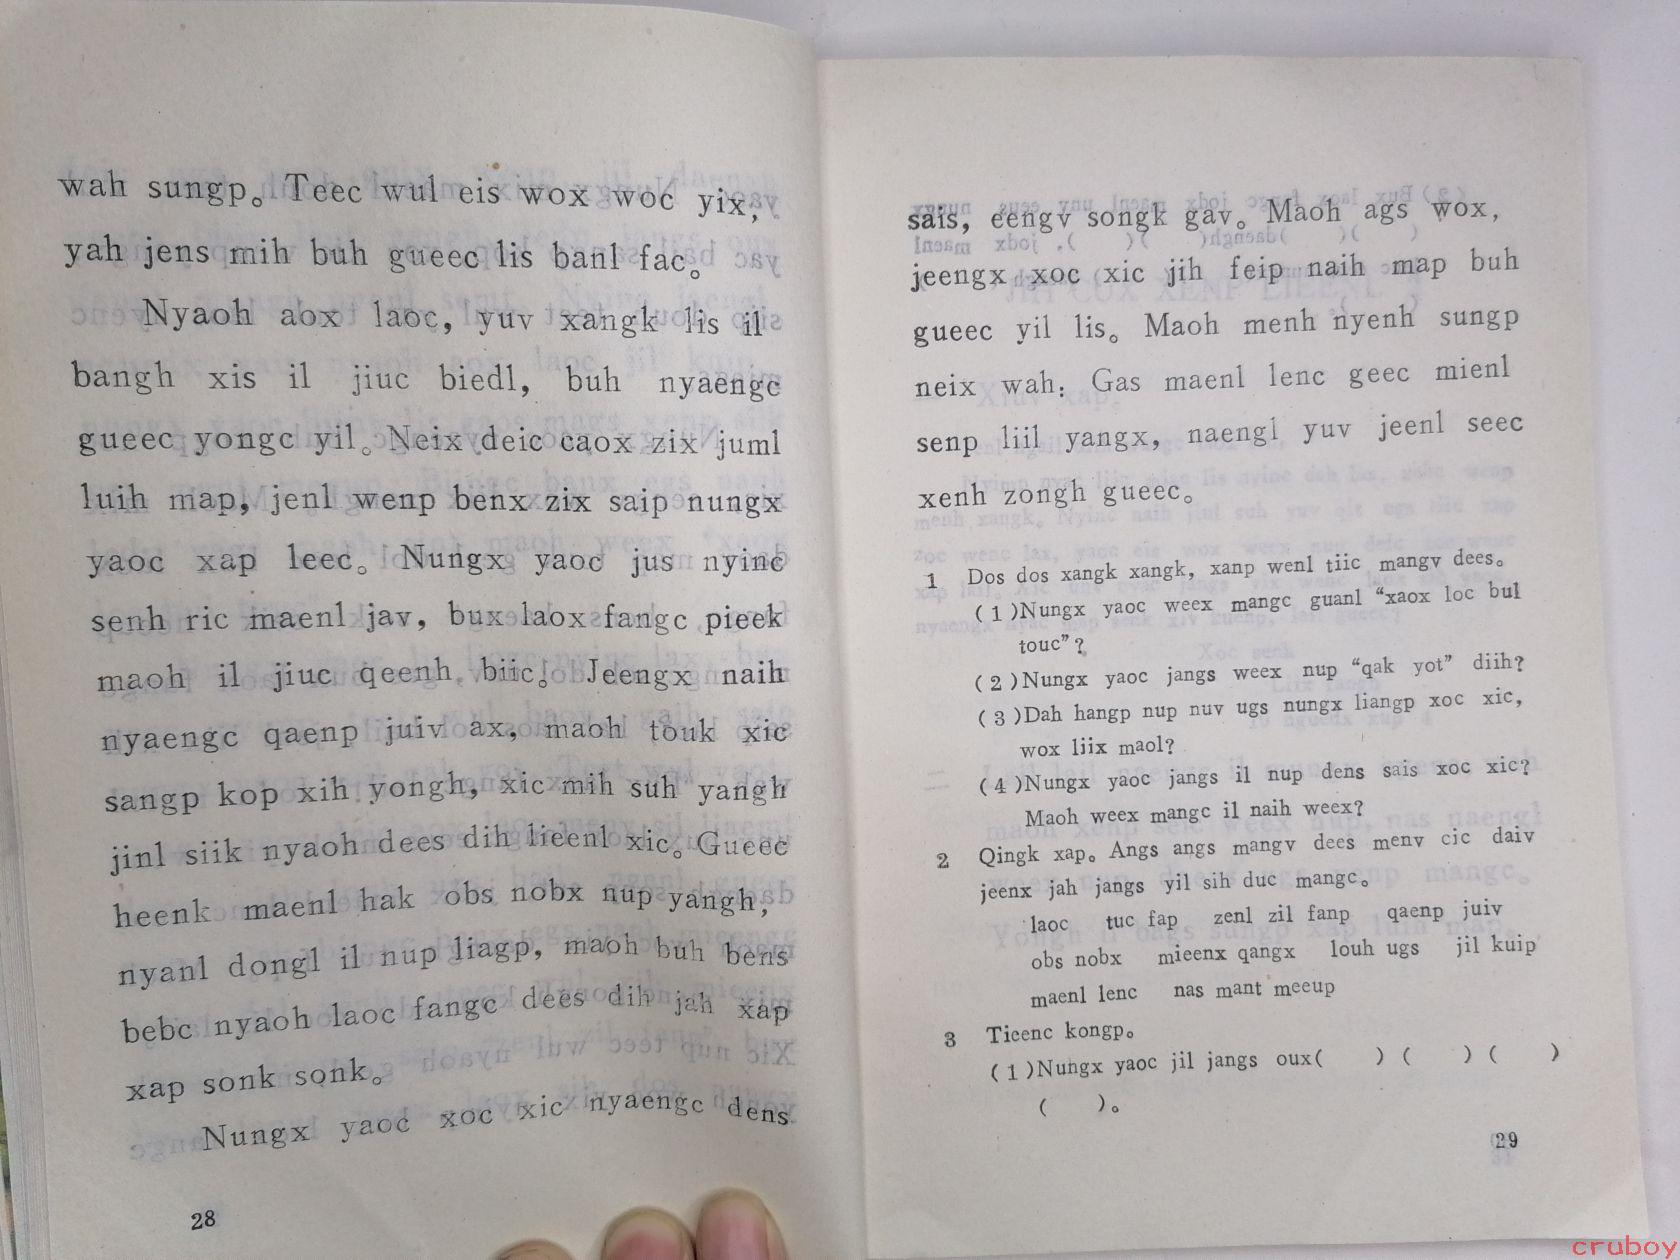 wah sungp。Teec wul eis wox woc yix,
yah jens mih buh gueec lis banl fac。
Nyaoh aox laoc, yuv xangk lis il
bangh xis il jiuc biedl, buh nyaengc
gueec yongc yil。Neix deic caox zix juml
luih map, jenl wenp benx zix saip nungx
yaoc xap leec。Nungx yaoc jus nyinc
senh ric maenl jav, bux laox fangc pieek
maoh il jiuc qeenh biic! Jeengx naih
nyaengc qaenp juiv ax, maoh touk xic
sangp kop xih yongh, xic mih suh yangh
jinl siik nyaoh dees dih lieenl xic。Gueec
heenk maenl hak obs nobx nup yangh,
nyanl dongl il nup liagp, maoh buh bens
bebc nyaoh laoc fangc dees dih jah xap
xap sonk sonk。
Nungx yaoc xoc xic nyaengc dens
28
sais, eengv songk gav。Maoh ags wox,
jeengx xoc xic jih feip naih map buh
gueec yil lis。Maoh menh nyenh sungp
neix wah: Gas maenl lenc geec mienl
senp liil yangx, naengl yuv jeenl seec
xenh zongh gueec。
1 Dos dos xangk xangk, xanp wenl tiic mangv dees。
(1)Nungx yaoc weex mangc guanl “xaox loc bul
touc”?
(2)Nungx yaoc jangs weex nup “qak yot” diih?
(3)Dah hangp nup nuv ugs nungx liangp xoc xic,
wox liix maol?
(4)Nungx yaoc jangs il nup dens sais xoc xic?
Maoh weex mangc il naih weex?
2 Qingk xap。Angs angs mangv dees menv cic daiv
jeenx jah jangs yil sih duc mangc。
laoc tuc fap zenl zil fanp qaenp juiv
obs nobx mieenx qangx louh ugs jil kuip
maenl lenc nas mant meeup
3 Tieenc kongp。
(1)Nungx yaoc jil jangs oux( ) ( ) ( )
( )。
29
cruboy